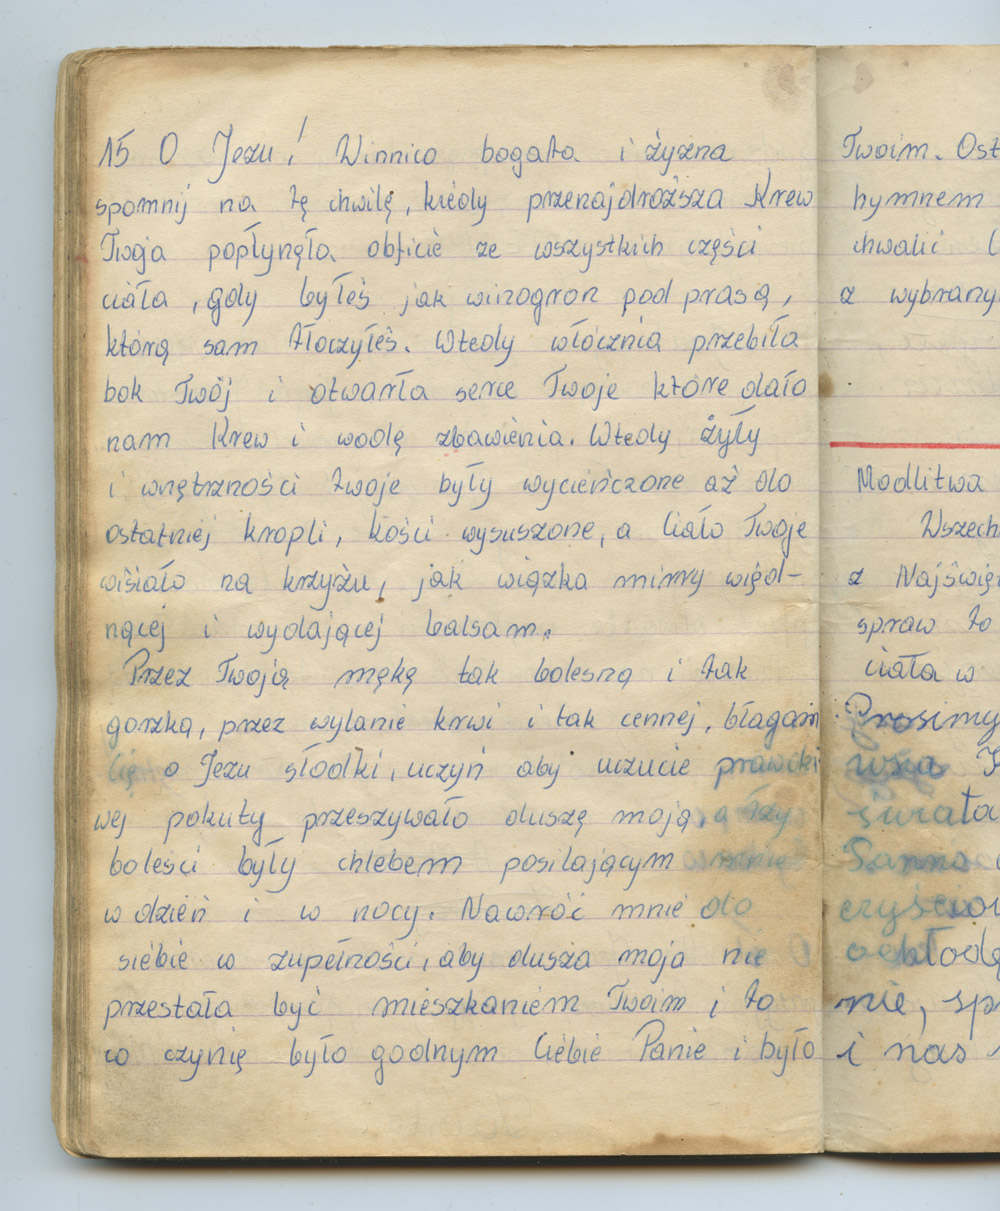 15 O Jezu! Winnico bogata i żyzna
spomnij na tę chwilę, kiedy przenajdroższa Krew
Twoja popłynęła obficie ze wszystkich części
ciała, gdy byłeś jak winogron pod prasą,
którą sam tłoczyłeś. Wtedy włócznia przebiła
bok Twój i otwarła serce Twoje które dało
nam Krew i wodę zbawienia. Wtedy żyły
i wnętrzności twoje były wycieńczone aż do
ostatniej kropli, kości wysuszone, a Ciało Twoje
wisiało na krzyżu, jak wiązka mirry więd-
nącej i wydającej balsam.
Przez Twoją mękę tak bolesną i tak
gorzką, przez wylanie krwi i tak cennej, błagam
Cię o Jezu słodki, uczyń aby uczucie prawdzi
wej pokuty przeszywało duszę moją, a łzy
boleści były chlebem posilającym mnie
w dzień i w nocy. Nawróć mnie do
siebie w zupełności, aby dusza moja nie
przestała być mieszkaniem Twoim i to
co czynię było godnym Ciebie Panie i było
Twoim. Ost
hymnem
chwalić
z wybrany
Modlitwa
Wszech
z Najświę
spraw to
ciała w
Prosimy
świata
czyścio
nie, sp
i nas